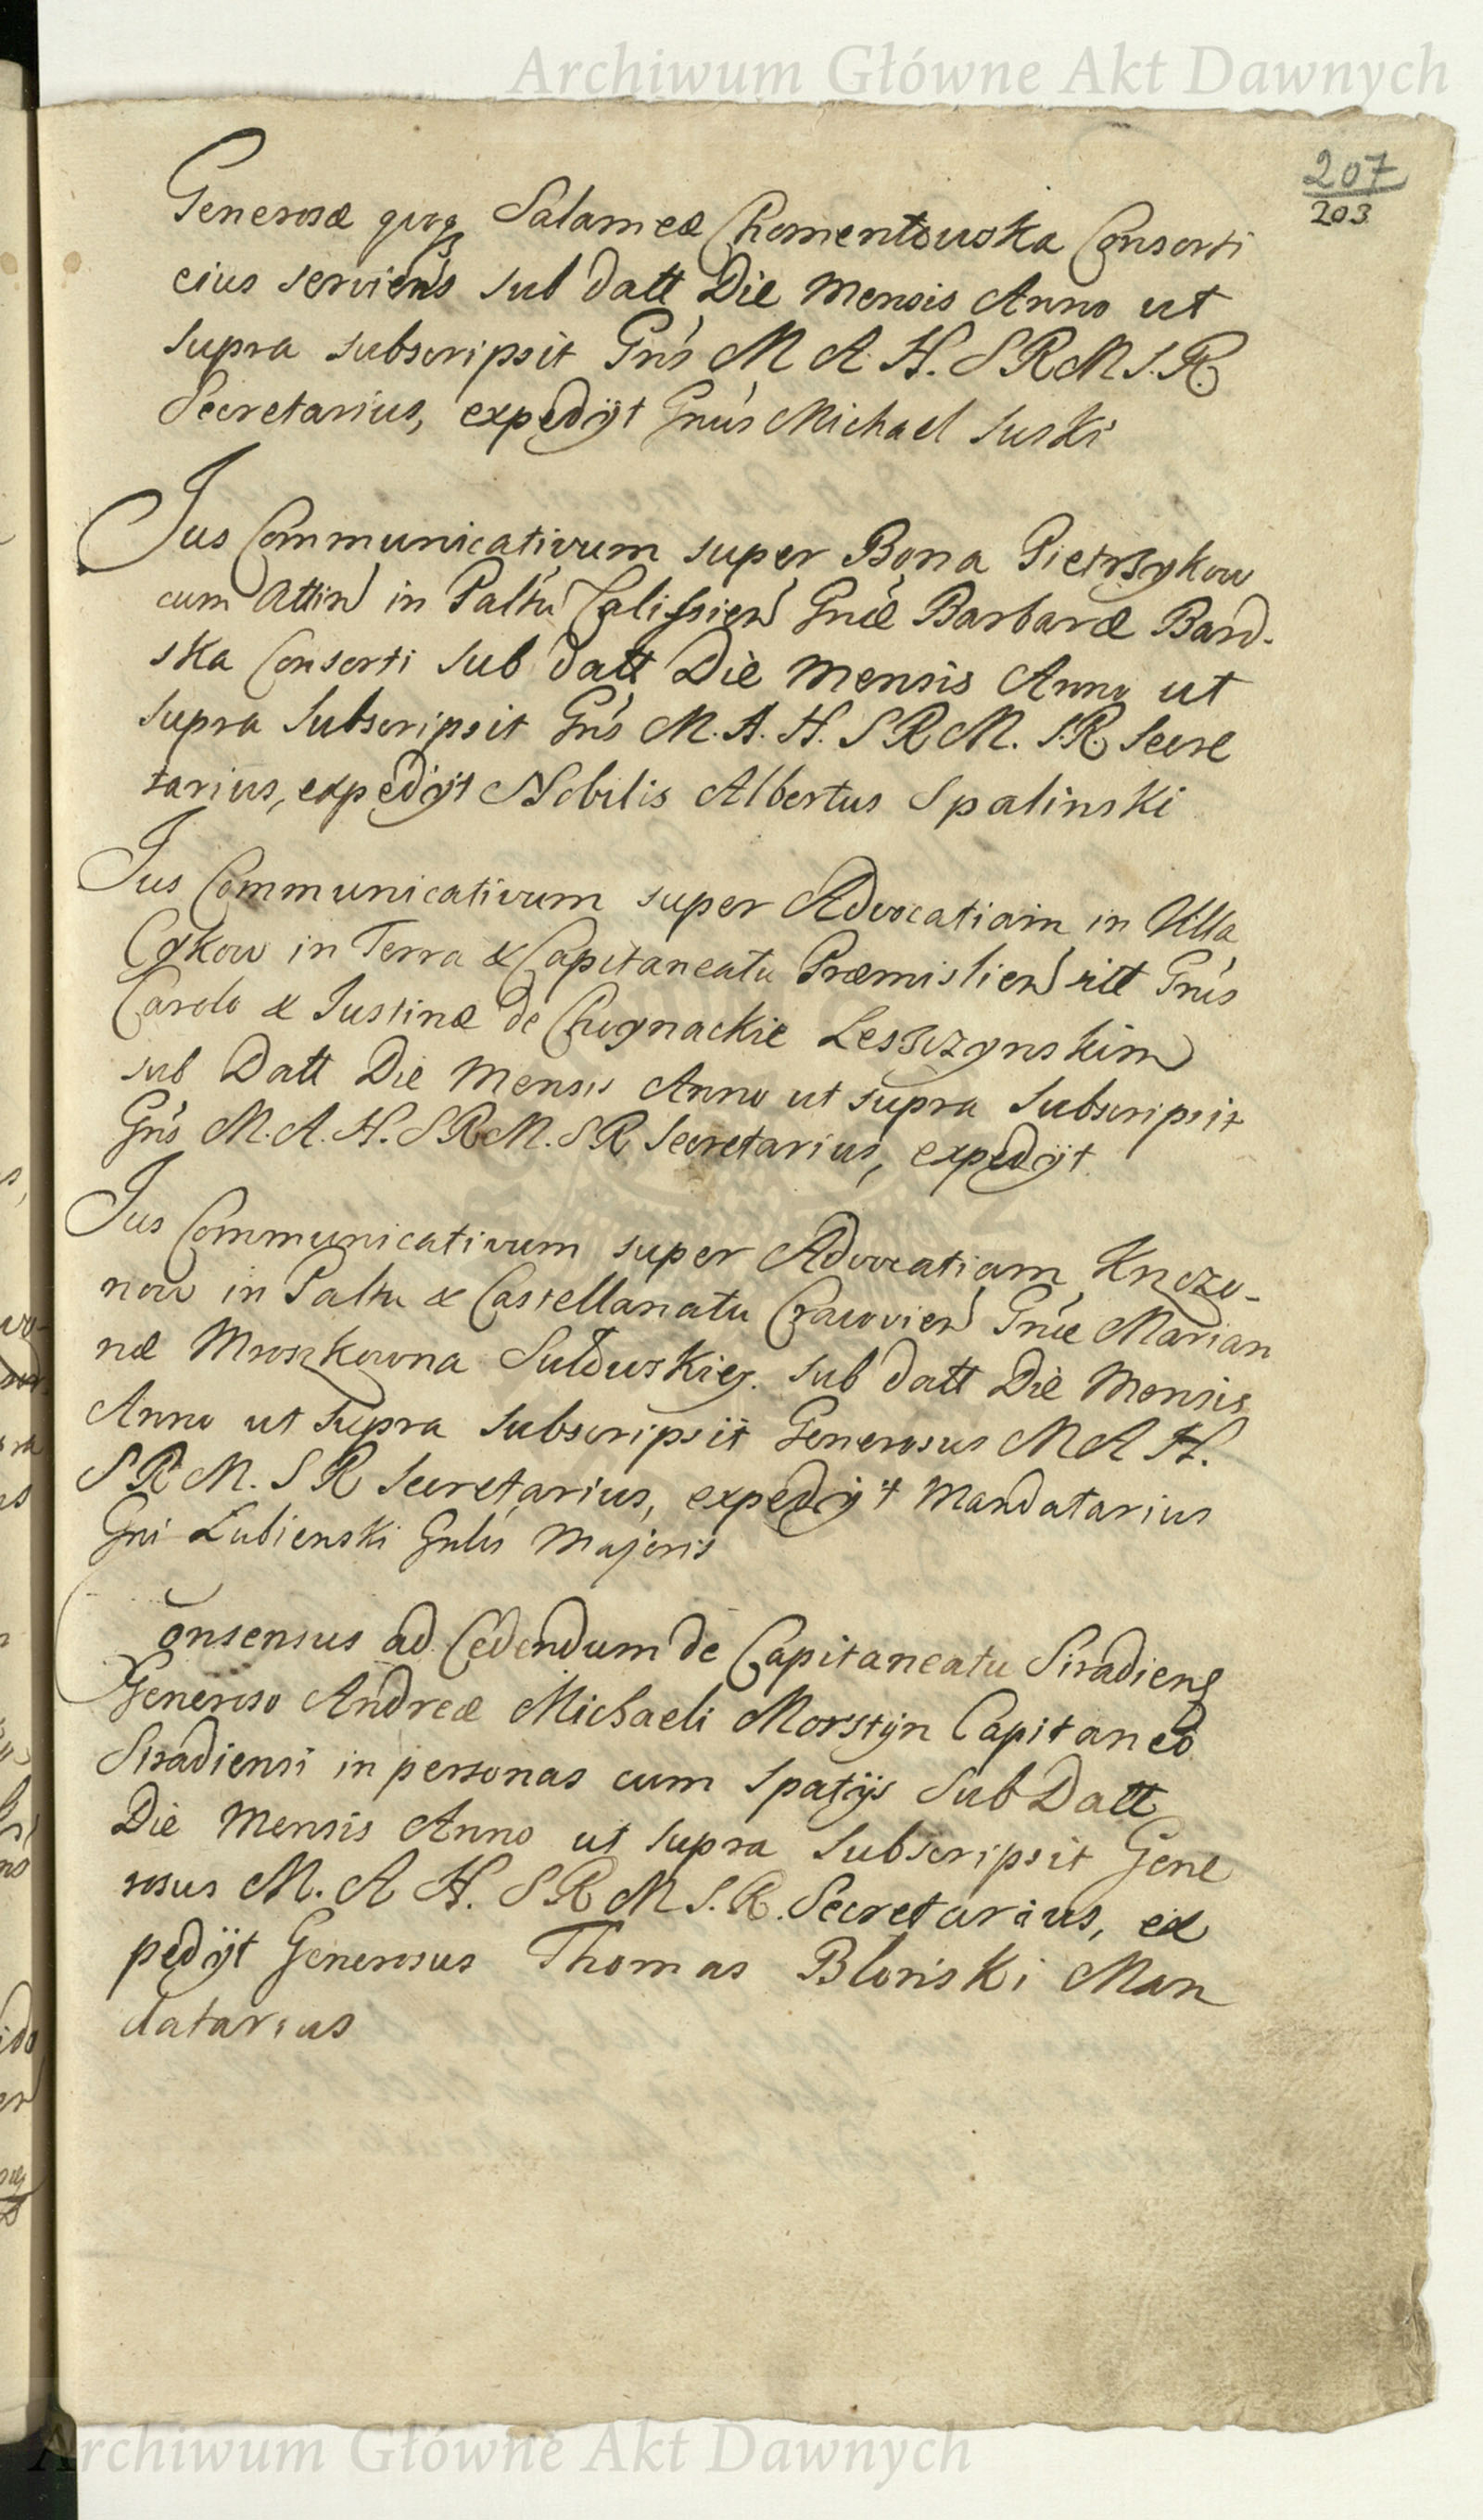 Archiwum Główne Akt Dawnych
207
203
Generosæ quoq Salameæ Chomentowska Consorti
eius serviens sub datt Die Mensis Anno ut
supra subscripsit Gns M A H. S R M S. R.
Secretarius, expedijt Gnus Michael Suski
Jus Communicativum super Bona Pietrzykow
cum Attin in Paltu Calissien Gnæ Barbaræ Bard-
ska Consorti sub datt Die Mensis Anno ut
supra Subscripsit Gns M. A. H. S R M. S. R. Secre
tarius, expedijt Nobilis Albertus Spalinski
Jus Communicativum super Advocatiam in Villa
Cykow in Terra & Capitaneatu Præmislien sitt Gnis
Carolo & Justinæ de Choynackie Leszczynskim
sub Datt Die Mensis Anno ut supra Subscripsit
Gns M. A. H. S R M. S R Secretarius, expedijt
Jus Communicativum super Advocatiam Knczo-
now in Paltu & Castellanatu Cracovien Gnæ Marian
næ Mroszkowna Suldwskieg. sub datt Die Mensis
Anno ut supra Subscripsit Generosus M A H.
S R M. S R Secretarius, expedijt Mandatarius
Gni Lubienski Gnlis Majoris
Consensus ad Cedendum de Capitaneatu Siradiens
Generoso Andreæ Michaeli Morstijn Capitaneo
Siradiensi in personas cum spatijs Sub Datt
Die Mensis Anno ut supra Subscripsit Gene
rosus M. A H. S R M S. R. Secretarius, ex
pedijt Generosus Thomas Blonski Man
datarius
Archiwum Główne Akt Dawnych